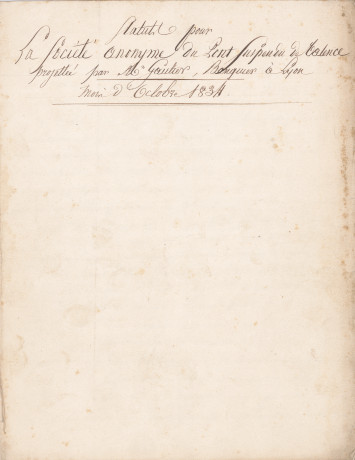 Statut pour
La Société anonyme du Pont Suspendu de Valence
projettée par Mr Gautier, Banquier à Lyon
mois d'Octobre 1834